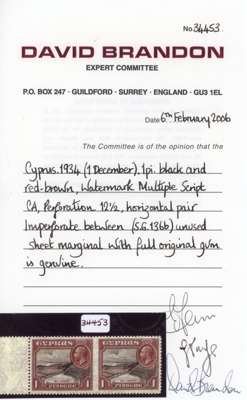 No. 34453
DAVID BRANDON
EXPERT COMMITTEE
P.O. BOX 247 · GUILDFORD · SURREY · ENGLAND · GU3 1EL
Date 6th February 2006
The Committee is of the opinion that the
Cyprus. 1934 (1 December), 1pi. black and
red-brown, Watermark Multiple Script
CA, Perforation 12½, horizontal pair
Imperforate between (S.G.136b) unused
sheet marginal with full original gum
is genuine.
34453
CYPRUS CYPRUS
1 PIASTRE 1 1 PIASTRE 1
David Brandon